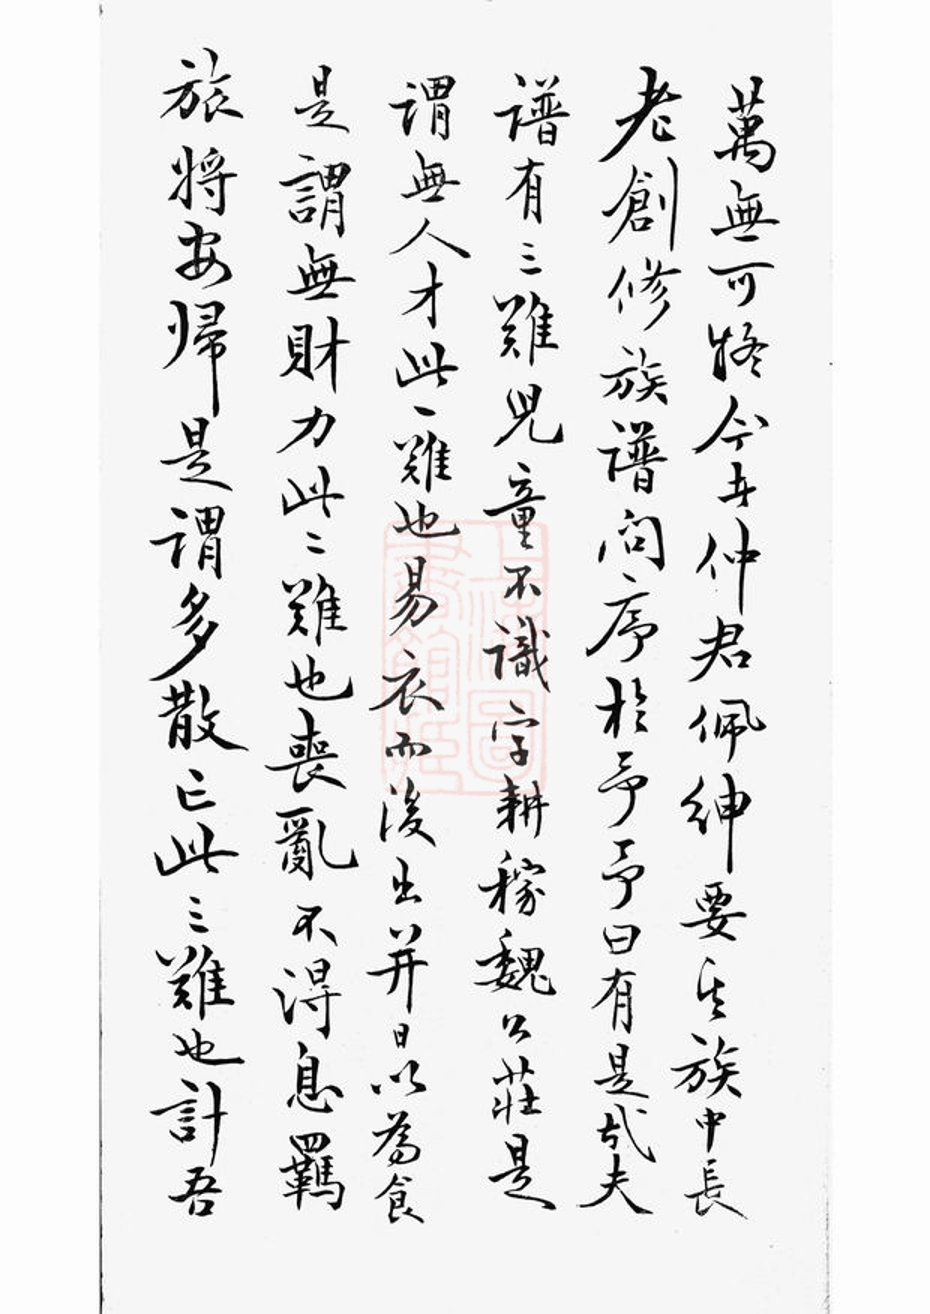 萬無可將今年仲君佩紳要其族中長
老創修族譜問序於予予曰有是哉夫
譜有三難兒童不識字耕稼魏公莊是
謂無人才此一難也易衣而後出并日以為食
是謂無財力此二難也喪亂不得息羈
旅將安歸是謂多散亡此三難也計吾